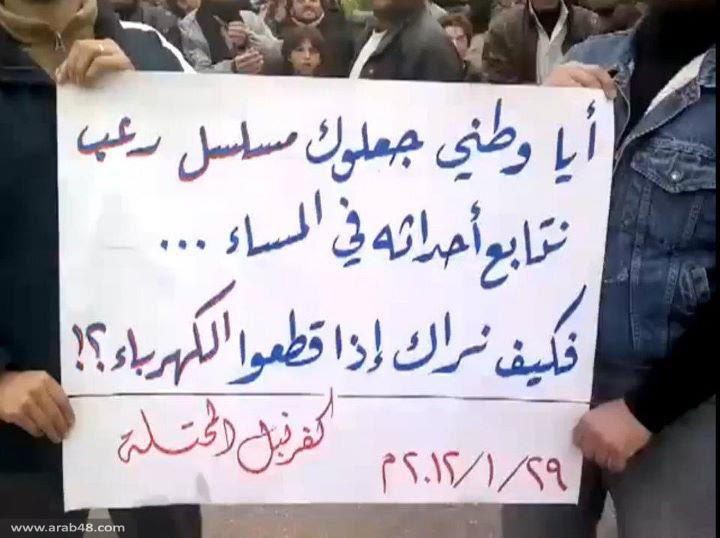 أيا وطني جعلوك مسلسل رعب
نتابع أحداثه في المساء ...
فكيف نراك إذا قطعوا الكهرباء؟!
كفرنبل المحتلة
٢٩/١/٢٠١٢م
www.arab48.com